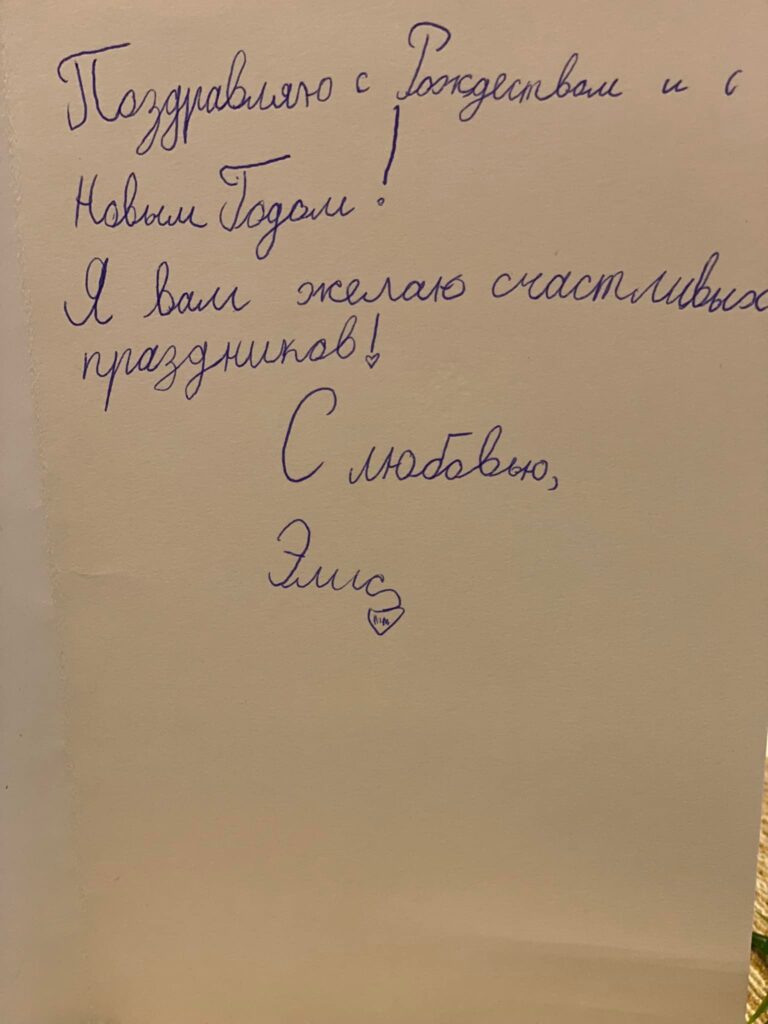 Поздравляю с Рождеством и с
Новым Годом!
Я вам желаю счастливых
праздников!
С любовью,
Элиз